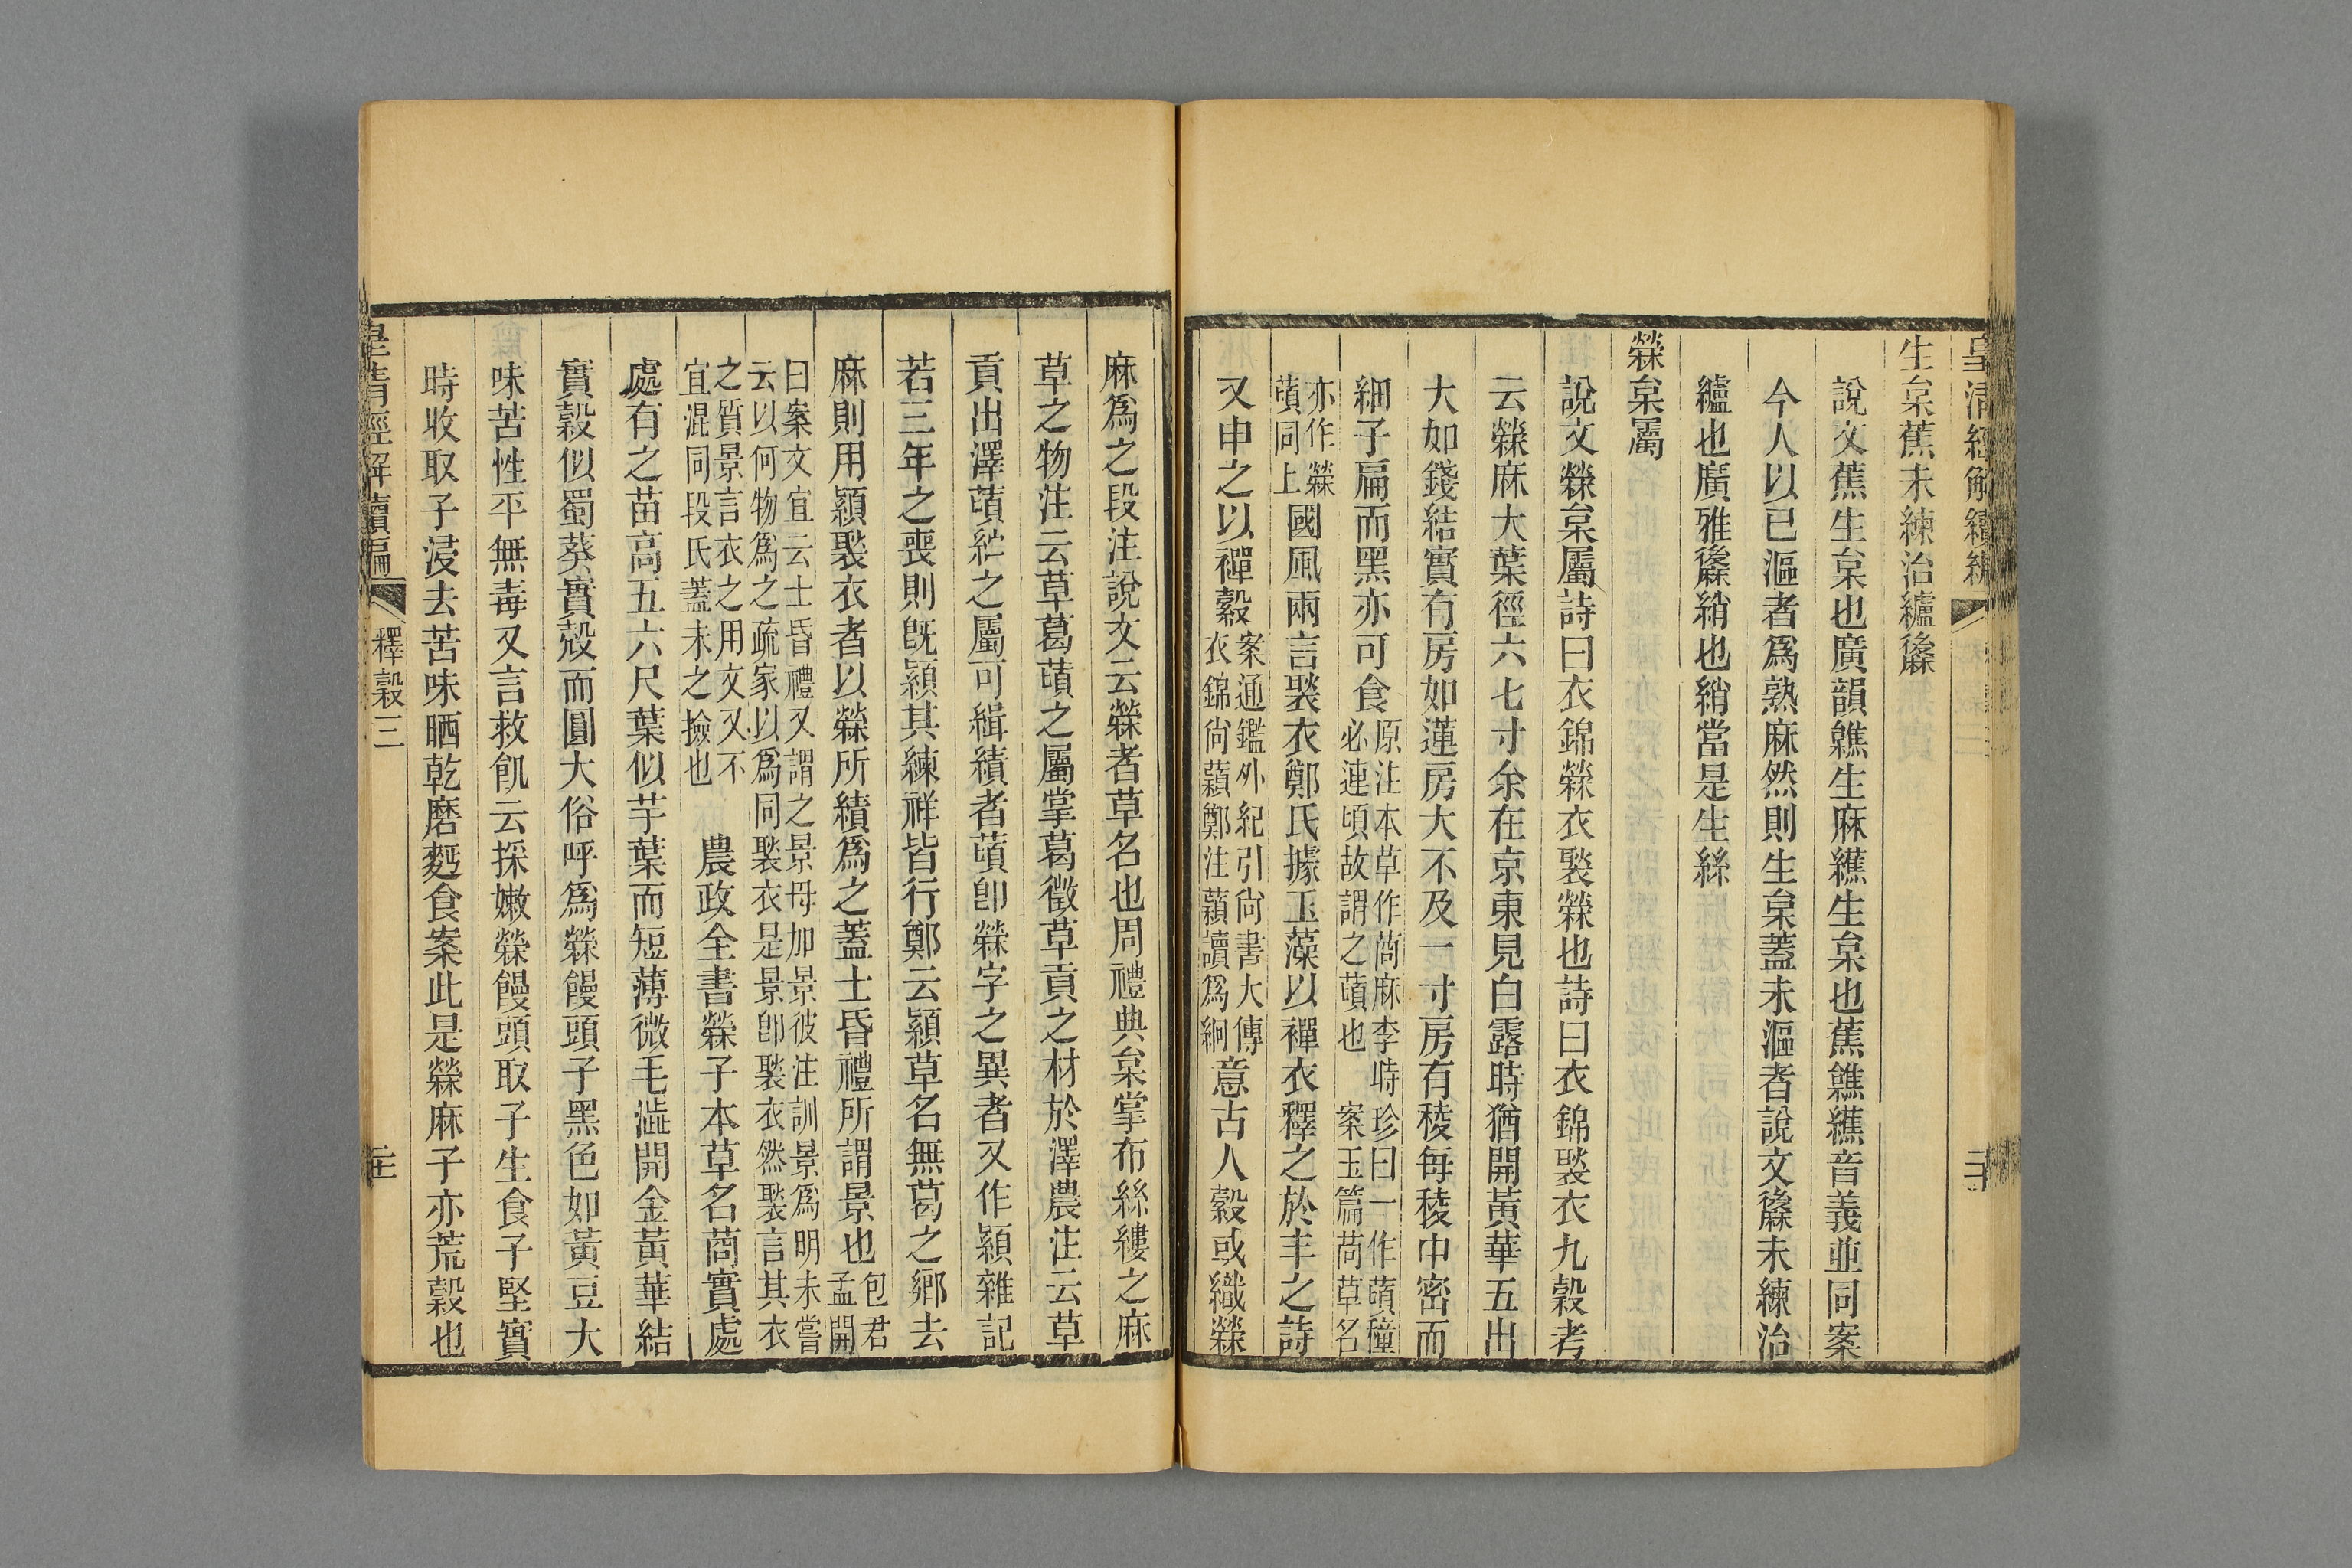 皇清經解續編
生枲蕉未練治纑䋛
說文蕉生枲也廣韻䌭生麻䌭生枲也蕉䌭䌭音義並同案
今人以已漚者爲熟麻然則生枲蓋未漚者說文䋛未練治
纑也廣雅䋛綃也綃當是生絲
檾枲屬
說文檾枲屬詩曰衣錦檾衣褧檾也詩曰衣錦褧衣九穀考
云檾麻大葉徑六七寸余在京東見白露時猶開黃華五出
大如錢結實有房如蓮房大不及一寸房有稜每稜中密而
細子扁而黑亦可食原注本草作䔛麻李時珍曰一作䔛穜
必連頃故謂之䔛也案玉篇苘草名
亦作檾
䔛同上國風兩言褧衣鄭氏據玉藻以襌衣釋之於丰之詩
又申之以襌縠案通鑑外紀引尙書大傳
衣錦尙蘔鄭注蘔讀爲絅意古人縠或織檾
麻爲之段注說文云檾者草名也周禮典枲掌布絲縷之麻
草之物注云草葛䔛之屬掌葛徵草貢之材於澤農注云草
貢出澤䔛紵之屬可緝績者䔛卽檾字之異者又作顈雜記
若三年之喪則旣顈其練祥皆行鄭云顈草名無葛之鄉去
麻則用顈褧衣者以檾所績爲之蓋士昏禮所謂景也包君
孟開
曰案文宜云士昏禮又謂之景母加景彼注訓景爲明未嘗
云以何物爲之疏家以爲同褧衣是景卽褧衣然褧言其衣
之質景言衣之用文又不
宜混同段氏蓋未之撿也 農政全書檾子本草名䔛實處
處有之苗高五六尺葉似芋葉而短薄微毛澁開金黃華結
實穀似蜀葵實殼而圓大俗呼爲檾饅頭子黑色如黃豆大
味苦性平無毒又言救飢云採嫩檾饅頭取子生食子堅實
時收取子浸去苦味晒乾磨麪食案此是檾麻子亦荒穀也
皇清經解續編 釋穀三